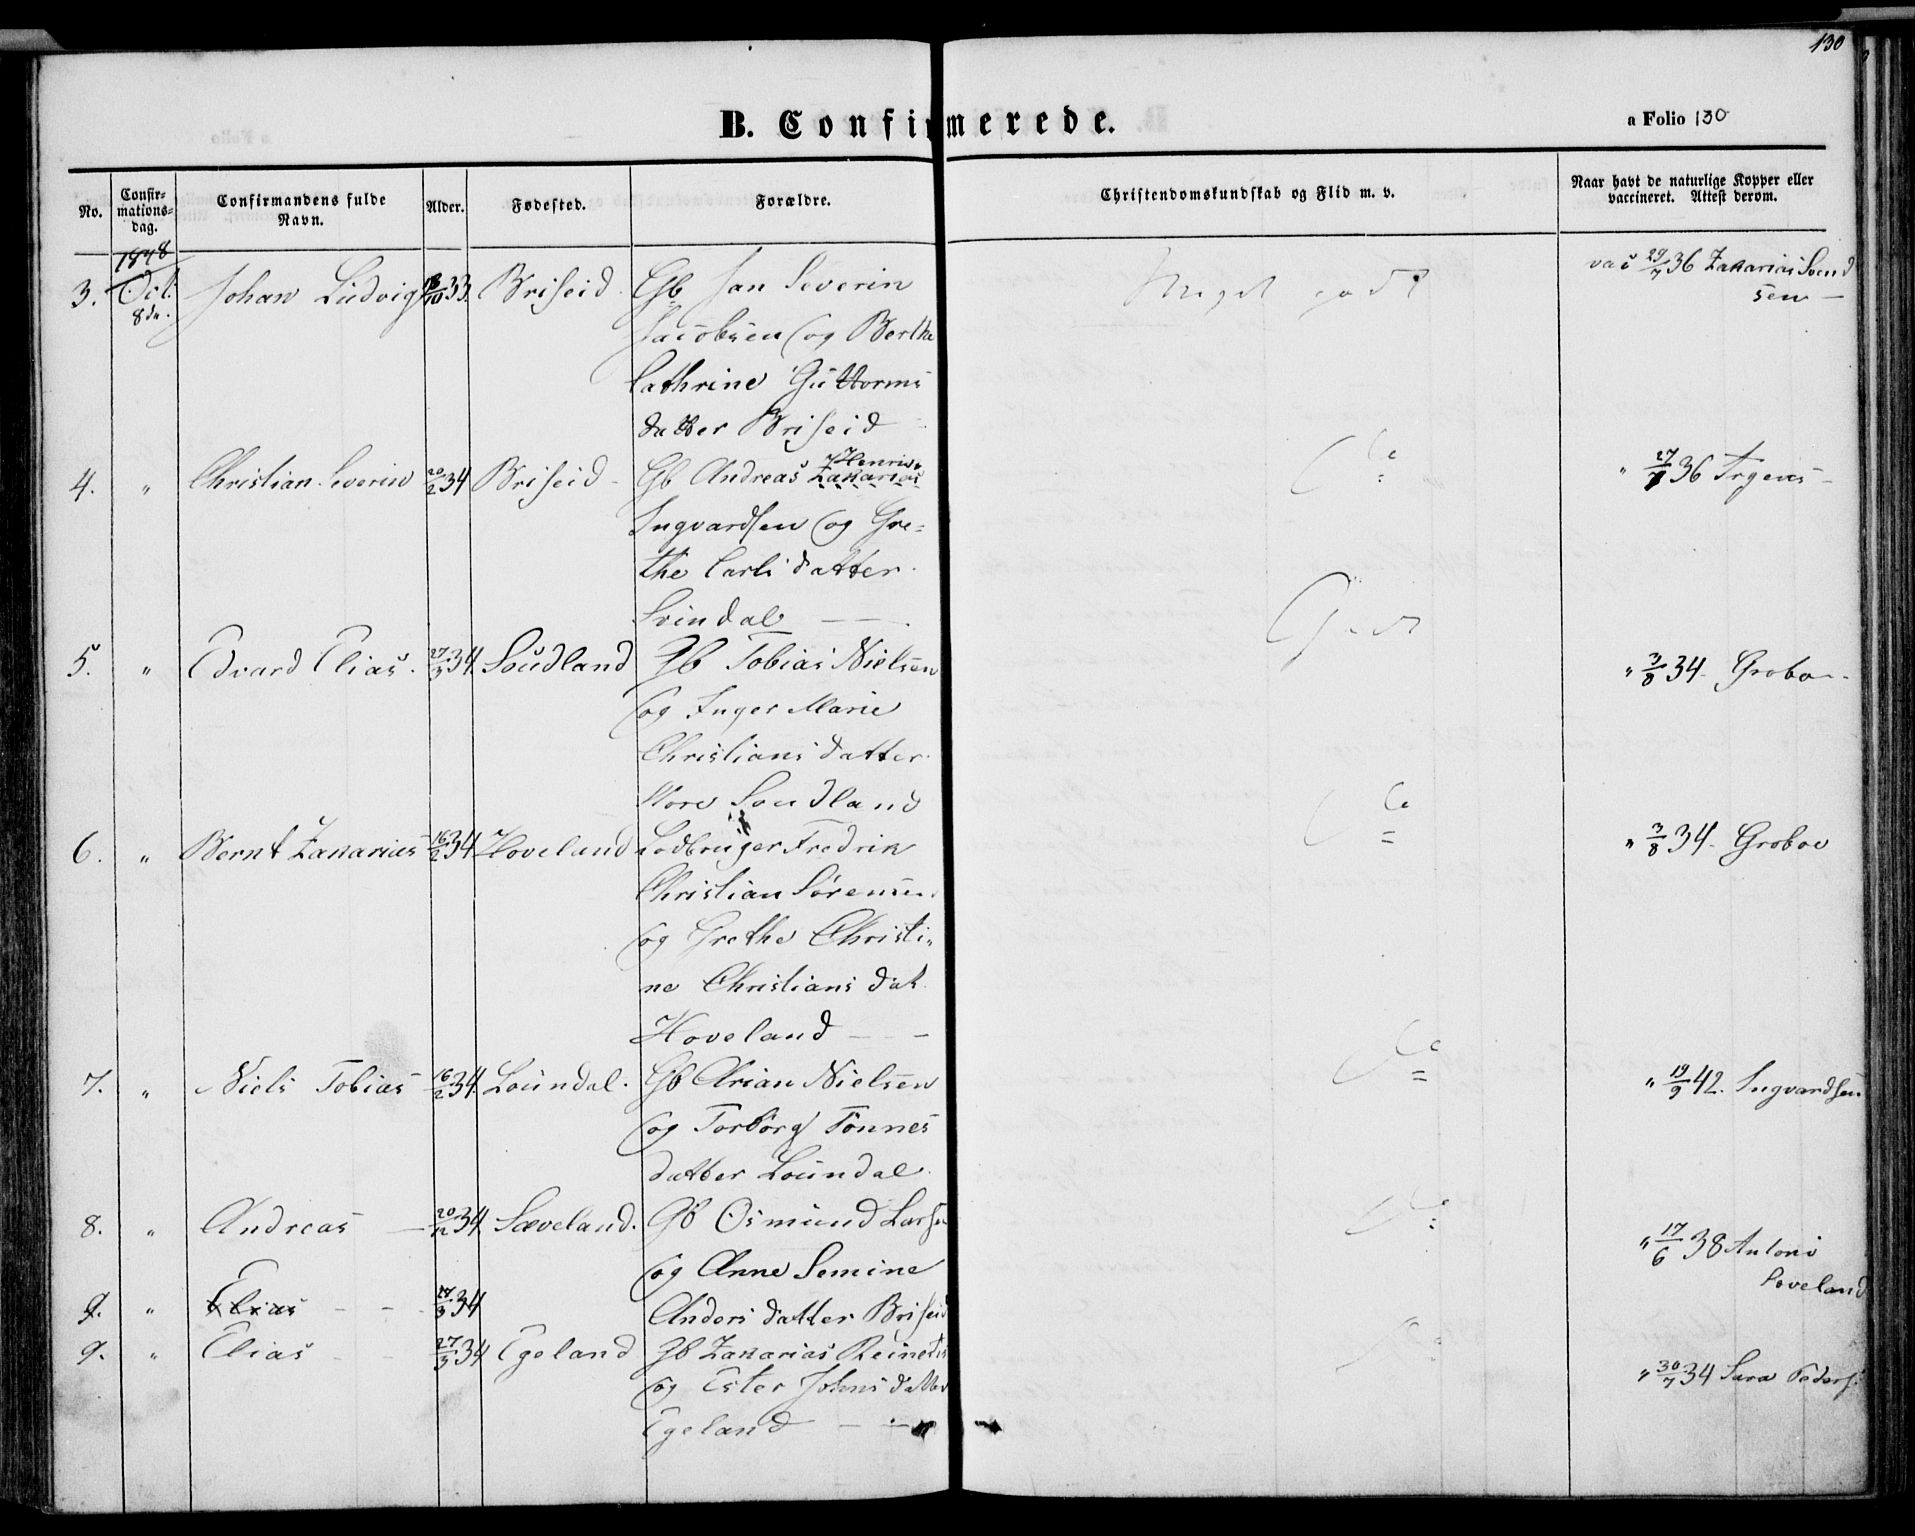 130
B. Confirmerede.
a Folio 130
No.
Confir-
mations-
dag.
Confirmandens fulde
Navn.
Alder.
Fødested.
Forældre.
Christendomskundskab og Flid m. v.
Naar havt de naturlige Kopper eller
vaccineret. Attest derom.
1848
3. Oct. 8de. Johan Ludvig 18/10 33. Briseid Gb Jan Severin
Jacobsen og Berthe
Cathrine Guttorms
datter Briseid
Meget godt
vac 29/7 36 Zakarias Svend
sen —
4. " Christian Severin 20/2 34 Briseid - Gb Andreas Zakarias
Ingvardsen og Gre-
the Carls datter
Svindal —
" 27/7 36 Trgens -
5. " Edvard Elias. 27/3 34. Soudland Gb Tobias Nielsen
og Inger Marie
Christians datter
Store Soudland
Godt
" 3/8 34. Groboe
6. " Bernt Zakarias 16/2 34 Hoveland Lodbruger Fredrik
Christian Sørensen
og Grethe Christi-
ne Christians dat.
Hoveland —
" 3/8 34. Groboe
7. " Niels Tobias 16/2 34. Loundal. Gb Arian Nielsen
og Torborg Tønnes
datter Loundal
" 19/9 42. Ingvardsen
8. " Andreas — 20/12 34. Sæveland. Gb Osmund Larsen
og Anne Semine
Anders datter Briseid
" 17/6 38 Antoni
Soveland
9. " Elias - - 27/3 34
9. " Elias - - 27/3 34 Egeland Gb Zakarias Reinerts
og Ester Johns datter
Egeland —
" 30/7 34 Sara Peders.